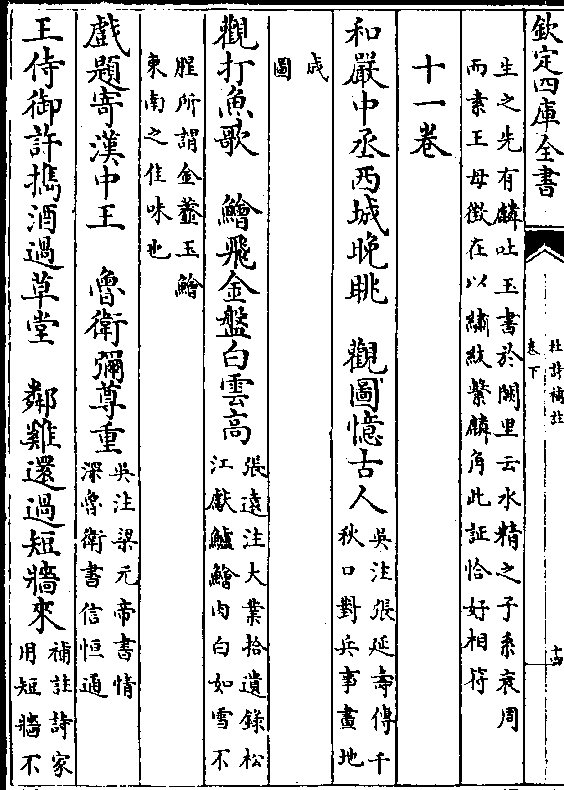 欽定四庫全書
杜詩補註
卷下
十四
生之先有麟吐玉書於闕里云水精之子系衰周
而素王母徵在以繡紋繫麟角此証恰好相符
十一卷
和嚴中丞西城晚眺　觀圖憶古人
吳注張延壽傳千
秋口對兵事畫地
成
圖
觀打魚歌　鱠飛金盤白雲高
張遠注大業拾遺錄松
江獻鱸鱠肉白如雪不
腥所謂金虀玉鱠
東南之佳味也
戲題寄漢中王　魯衛彌尊重
吳注梁元帝書情
深魯衛書信恒通
王侍御許攜酒過草堂　鄰雞還過短牆來
補註詩家
用短牆不